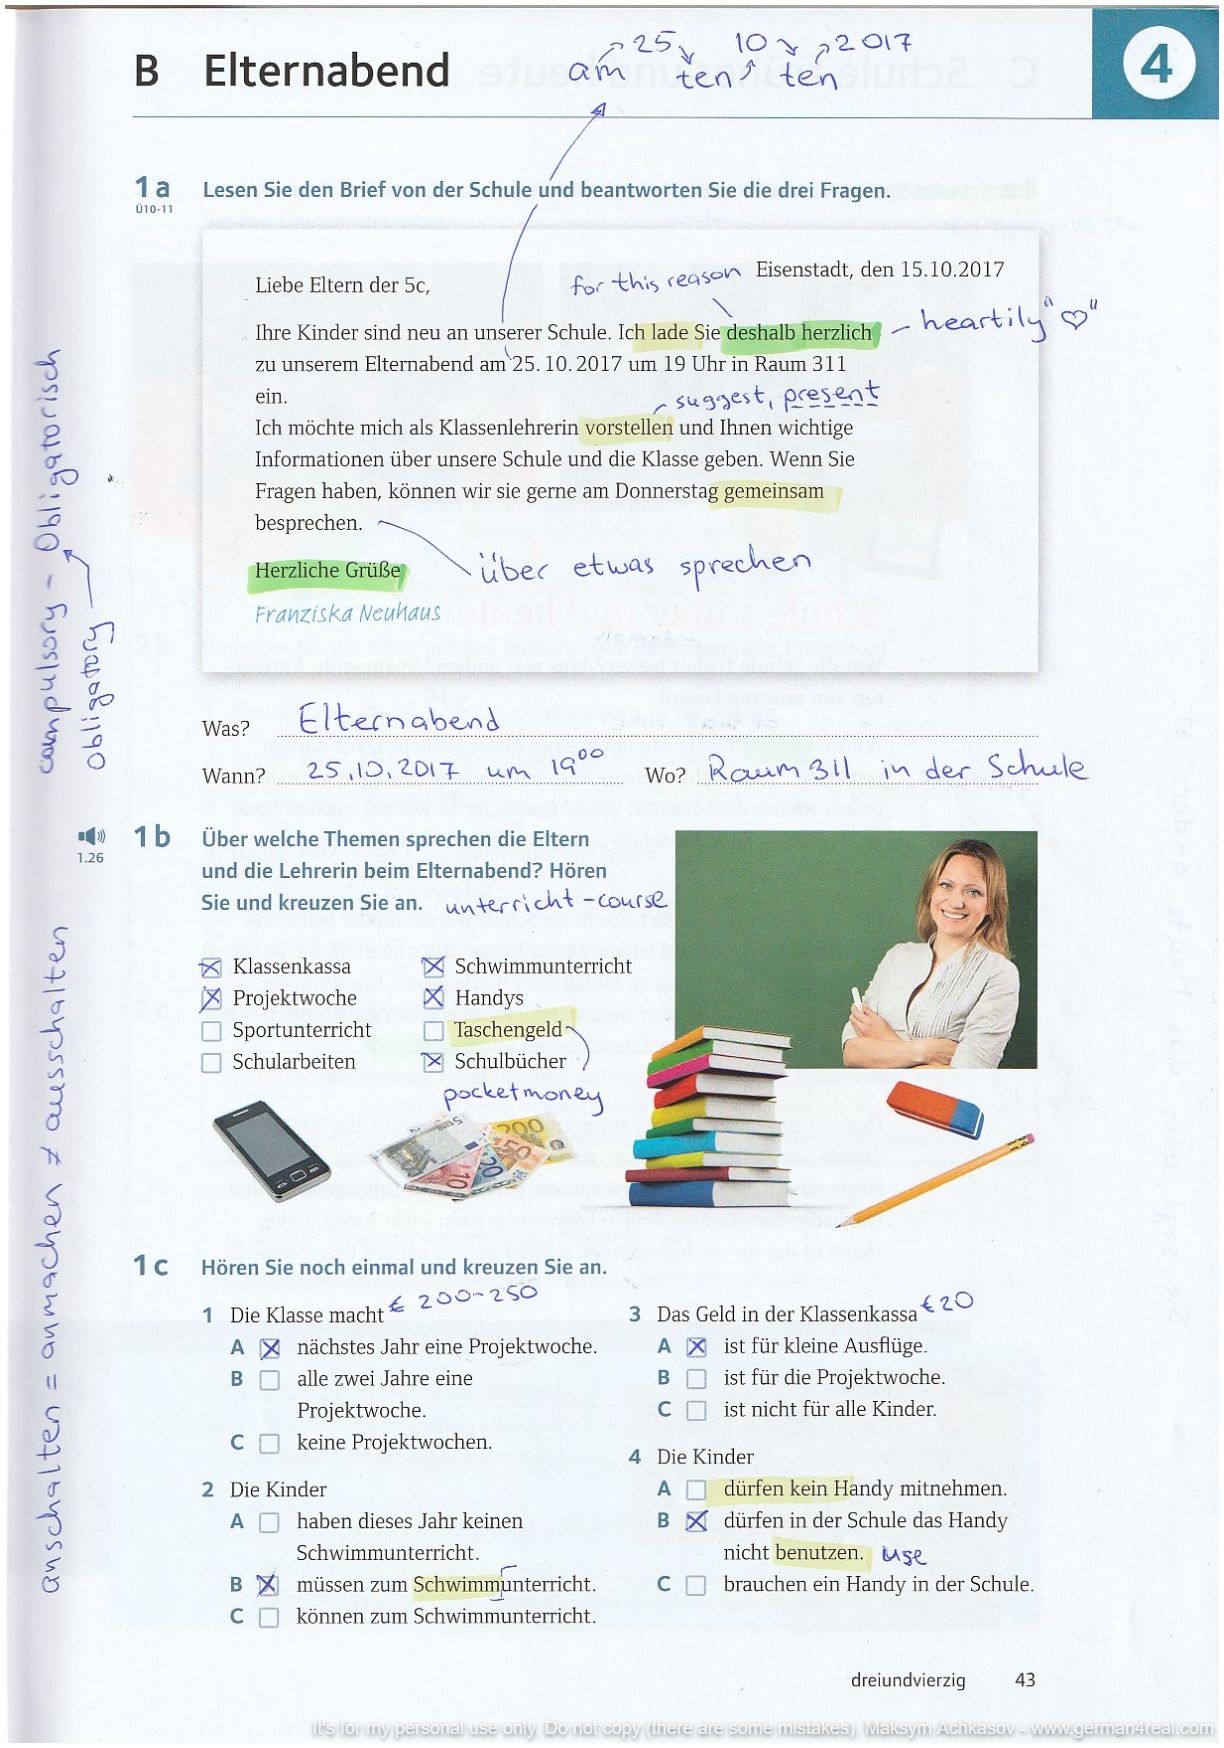 B Elternabend
am 25 ten 10 ten 2017
4
1a Lesen Sie den Brief von der Schule und beantworten Sie die drei Fragen.
Ü10-11
for this reason
Eisenstadt, den 15.10.2017
Liebe Eltern der 5c,
Ihre Kinder sind neu an unserer Schule. Ich lade Sie deshalb herzlich
– heartily "♡"
zu unserem Elternabend am 25.10.2017 um 19 Uhr in Raum 311
ein.
suggest, present
Ich möchte mich als Klassenlehrerin vorstellen und Ihnen wichtige
Informationen über unsere Schule und die Klasse geben. Wenn Sie
Fragen haben, können wir sie gerne am Donnerstag gemeinsam
besprechen.
über etwas sprechen
Herzliche Grüße
Franziska Neuhaus
compulsory – Obligatorisch
obligatory
Was? Elternabend
Wann? 25.10.2017 um 19⁰⁰ Wo? Raum 311 in der Schule
1.26
1b Über welche Themen sprechen die Eltern
und die Lehrerin beim Elternabend? Hören
Sie und kreuzen Sie an. unterricht – course
Klassenkassa Schwimmunterricht
Projektwoche Handys
Sportunterricht Taschengeld
Schularbeiten Schulbücher
pocketmoney
5 10 20 50 200
anschalten = anmachen ≠ ausschalten
1c Hören Sie noch einmal und kreuzen Sie an.
1 Die Klasse macht € 200-250
A nächstes Jahr eine Projektwoche.
B alle zwei Jahre eine
Projektwoche.
C keine Projektwochen.
2 Die Kinder
A haben dieses Jahr keinen
Schwimmunterricht.
B müssen zum Schwimmunterricht.
C können zum Schwimmunterricht.
3 Das Geld in der Klassenkassa €20
A ist für kleine Ausflüge.
B ist für die Projektwoche.
C ist nicht für alle Kinder.
4 Die Kinder
A dürfen kein Handy mitnehmen.
B dürfen in der Schule das Handy
nicht benutzen. use
C brauchen ein Handy in der Schule.
dreiundvierzig 43
It's for my personal use only. Do not copy (there are some mistakes). Maksym Achkasov - www.german4real.com